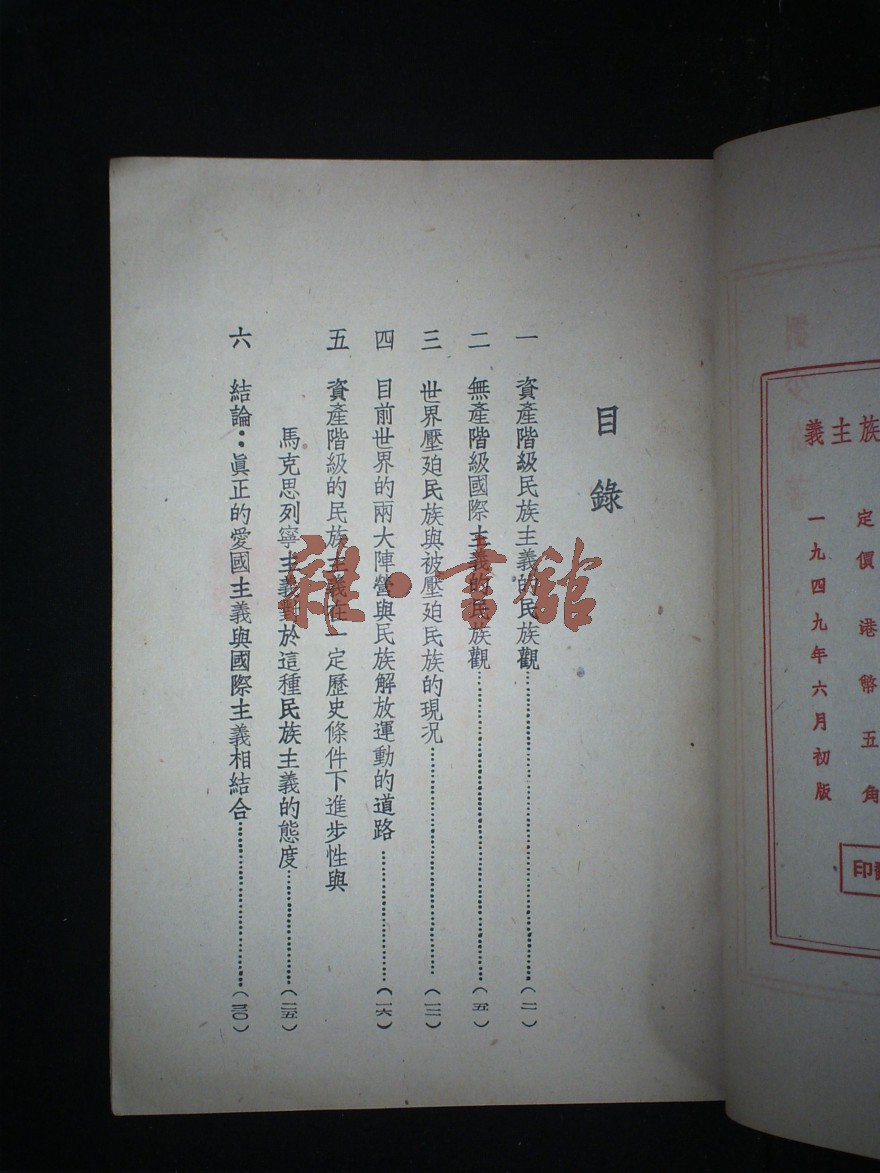 族主義
定價港幣五角
一九四九年六月初版
印
目錄
一 資產階級民族主義的民族觀……(一)
二 無產階級國際主義的民族觀……(五)
三 世界壓廹民族與被壓廹民族的現况……(一二)
四 目前世界的兩大陣營與民族解放運動的道路……(一六)
五 資產階級的民族主義在一定歷史條件下進步性與
馬克思列寧主義對於這種民族主義的態度……(二五)
六 結論：眞正的愛國主義與國際主義相結合……(三〇)
雜·書館